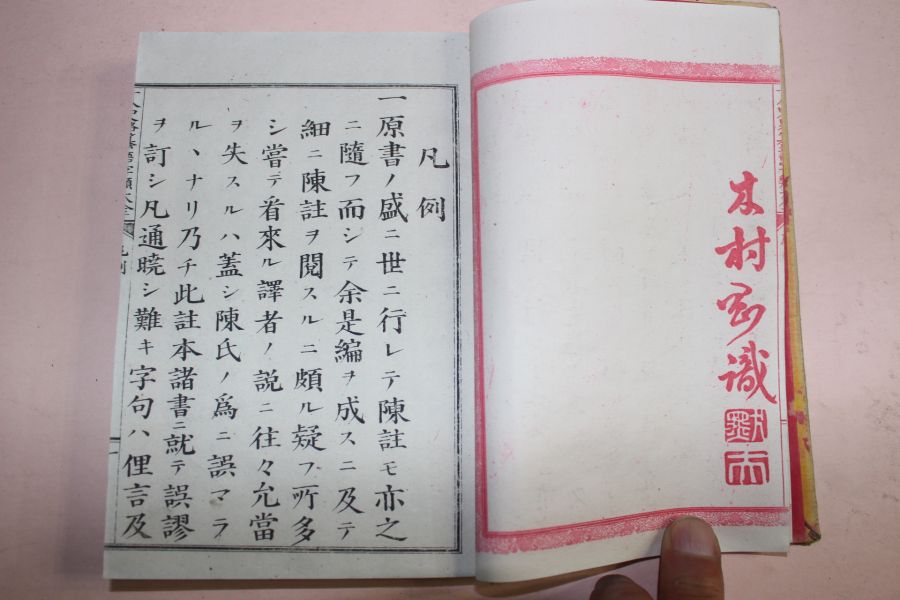 木村 識
凡例
一原書ノ盛ニ世ニ行レテ陳註モ亦之
ニ隨フ而シテ余是編ヲ成スニ及テ
細ニ陳註ヲ閲スルニ頗ル疑フ所多
シ嘗テ看來ル譯者ノ説ニ往々允當
ヲ失スルハ蓋シ陳氏ノ爲ニ誤マラ
ルヽナリ乃チ此註本諸書ニ就テ誤謬
ヲ訂シ凡通曉シ難キ字句ハ俚言及